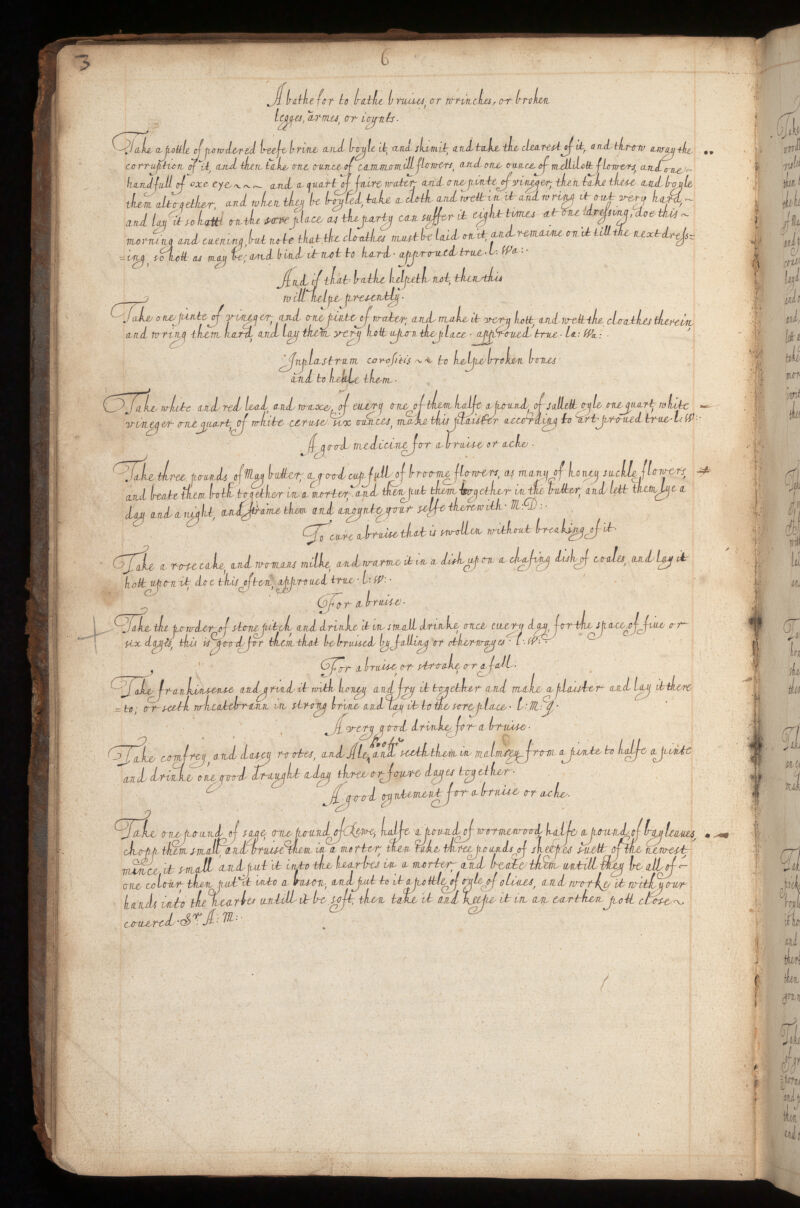 3
6
A bathe for to bathe bruises, or wrinches, or broken
legges, armes, or ioynts.
Take a pottle of powdered beefe brine and boyle it, and skimit, and take the clearest of it, and throw away the
corruption of it, and then take one ounce of cammomill flowers, and one ounce of mellilott flowers, and one
handfull of oxe eye and a quart of faire water, and one pinte of vineger, then take these and boyle
them altogether, and when they be boyled, take a cloth and wett in it and wring it out very hard,
and lay it so hott on the sore place as the party can suffer it eight times at one dressing, doe this
morning and euening, but note that the cloathes must be laid on it, and remaine on it till the next dress=
=ing, so hott as may be; and bind it not to hard. approued true. L: Wa:.
And if that bathe helpeth not, then this
will helpe presently.
Take one pinte of vineger, and one pinte of water, and make it very hott, and wett the cloathes therein,
and wring them hard, and lay them very hott upon the place. approued true. La: Wa:.
Inplastrum corositis to helpe broken bones
and to heale them.
Take white and red lead, and waxe, of euery one of them halfe a pound, of sallett oyle one quart, white
vineger one quart, of white ceruse six ounces, make this plaister according to art. proued true. L: W:.
A good medicine for a bruise or ache.
Take three pounds of May butter, a good cup full of broome flowers, as many of honey suckle flowers,
and beate them both together in a morter, and then put them together in the butter, and lett them lye a
day and a night, and straine them and anoynte your selfe therewith. M. D:.
To cure a bruise that is swollen without breaking of it.
Take a rose cake, and womans milke, and warme it in a dish upon a chafing dish of coales, and lay it
hott upon it, doe this often, approued true. L: W:.
For a bruise.
Take the powder of stone pitch and drinke it in small drinke once euery day, for the space of fiue or
six dayes, this is good for them that be bruised by falling or otherwayes. L: W:.
For a bruise or stroake, or a fall.
Take frankinsense and grind it with honey and fry it together and make a plaister and lay it there
=to; or seeth wheatebrann in strong brine and lay it to the sore place. L: M: G.
A very good drinke for a bruise.
Take comfrey, and dasey rootes, and Ale hoofe and seeth them in malmsey from a pinte to halfe a pinte
and drinke one good draught a day three or foure dayes together.
A good oyntement for a bruise or ache.
Take one pound of sage, one pound of Rewe, halfe a pound of wormewood, halfe a pound of bayleaues,
chopp them small, and bruise them in a morter, then take three pounds of sheepes suett of the newest
mince it small and put it into the hearbes in a morter, and beate them untill they be all of
one colour, then put it into a bason, and put to it a pottle of oyle of oliues, and worke it with your
hands into the hearbes untill it be soft, then take it and keepe it in an earthen pott close
couered. Sr. A: M:.